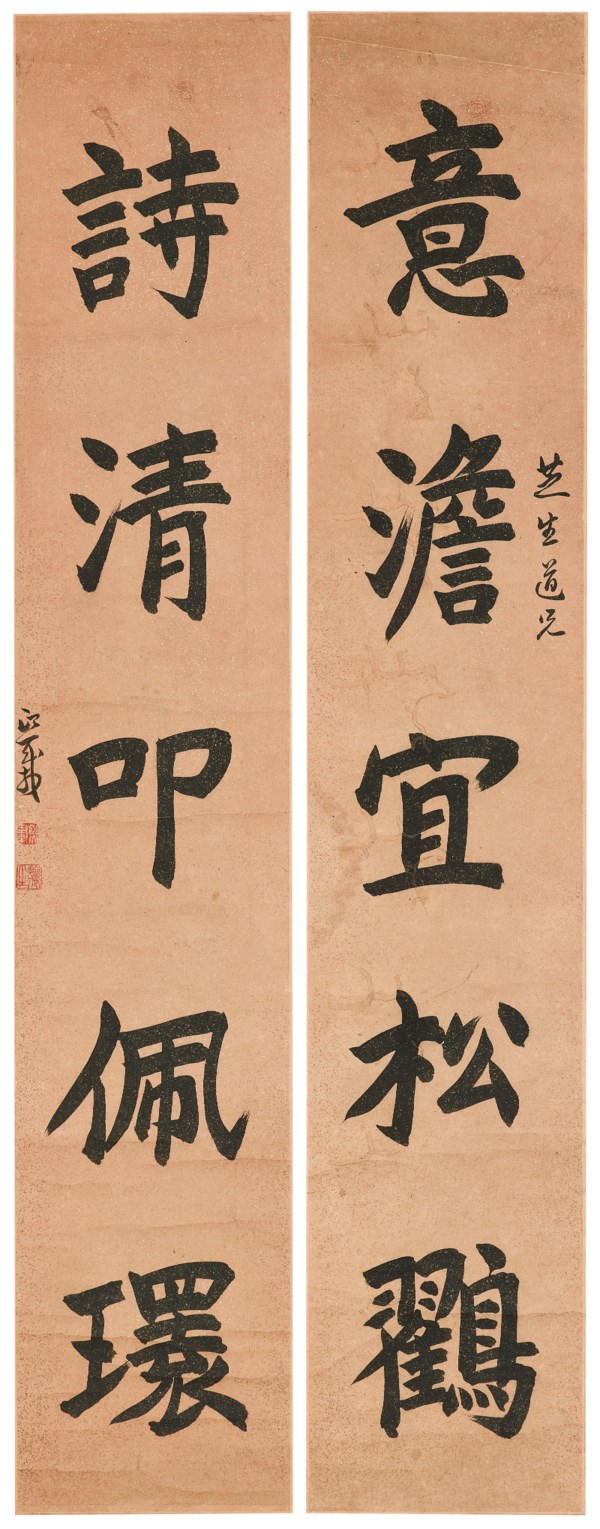 意澹宜松鶴
芝生道兄
詩清叩佩環